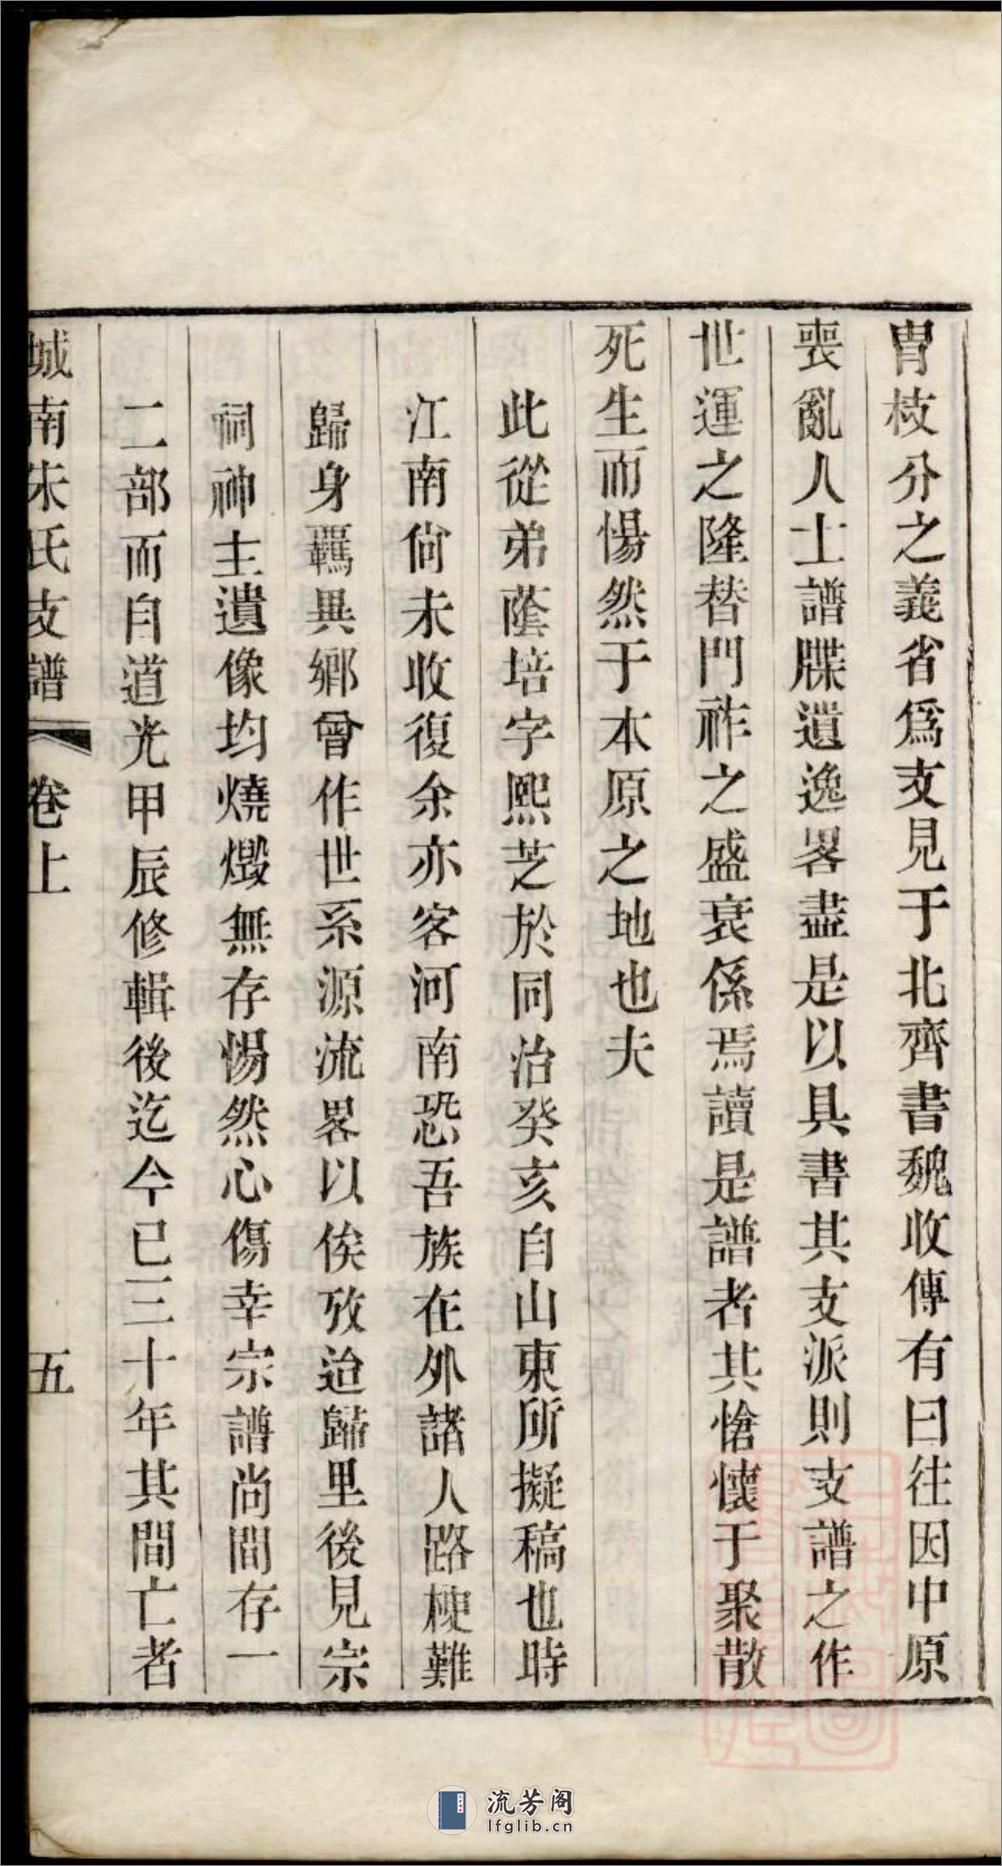 胄枝分之義省爲支見于北齊書魏收傳有曰往因中原
喪亂人士譜牒遺逸畧盡是以具書其支派則支譜之作
世運之隆替門祚之盛衰係焉讀是譜者其愴懷于聚散
死生而惕然于本原之地也夫
此從弟蔭培字熙芝於同治癸亥自山東所擬稿也時
江南尙未收復余亦客河南恐吾族在外諸人路梗難
歸身羈異鄉曾作世系源流畧以俟攷迨歸里後見宗
祠神主遺像均燒燬無存惕然心傷幸宗譜尚間存一
二部而自道光甲辰修輯後迄今已三十年其間亡者
城南朱氏支譜 卷上 五
流芳阁
lfglib.cn